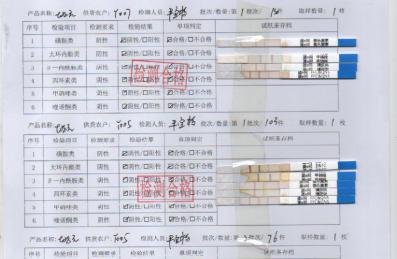 产品名称: 供货农户: Y007 检测人员: 批次/数量:第1批次/ 件 取样数量: 1 枚
序号 检验项目 检测要求 检验结果 单项判定 试纸条存档
1 磺胺类 阴性 ☑阴性/□阳性 ☑合格/□不合格
2 大环内酯类 阴性 ☑阴性/□阳性 ☑合格/□不合格
3 β-内酰胺类 阴性 ☑阴性/□阳性 ☑合格/□不合格
4 四环素类 阴性 ☑阴性/□阳性 ☑合格/□不合格
5 甲硝唑类 阴性 ☑阴性/□阳性 ☑合格/□不合格
6 喹诺酮类 阴性 ☑阴性/□阳性 ☑合格/□不合格
检测合格
产品名称: 供货农户: Y005 检测人员: 批次/数量:第1批次/103件 取样数量: 1 枚
序号 检验项目 检测要求 检验结果 单项判定 试纸条存档
1 磺胺类 阴性 ☑阴性/□阳性 ☑合格/□不合格
2 大环内酯类 阴性 ☑阴性/□阳性 ☑合格/□不合格
3 β-内酰胺类 阴性 ☑阴性/□阳性 ☑合格/□不合格
4 四环素类 阴性 ☑阴性/□阳性 ☑合格/□不合格
5 甲硝唑类 阴性 ☑阴性/□阳性 ☑合格/□不合格
6 喹诺酮类 阴性 ☑阴性/□阳性 ☑合格/□不合格
检测合格
产品名称: 供货农户: Y005 检测人员: 批次/数量:第 批次/76件 取样数量: 1 枚
序号 检验项目 检测要求 检验结果 单项判定 试纸条存档